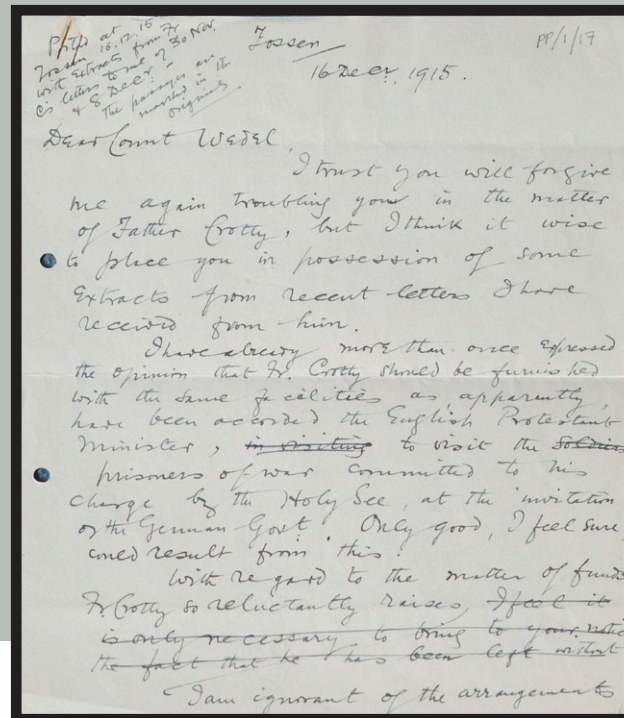 Posted at
Zossen 16.12.15
with Extracts from Fr
C's letters to me of 30 Nov.
& 8 Decr.
The passages are
marked in the
originals
PP/1/17
Zossen
16 Decr. 1915.
Dear Count Wedel,
I trust you will forgive
me again troubling you in the matter
of Father Crotty, but I think it wise
to place you in possession of some
Extracts from recent letters I have
received from him.
I have already more than once expressed
the opinion that Fr. Crotty should be furnished
with the same facilities as, apparently,
have been accorded the English Protestant
Minister, in visiting to visit the soldiers
prisoners of war committed to his
charge by the Holy See, at the invitation
of the German Govt. Only good, I feel sure,
could result from this.
With regard to the matter of funds
Fr. Crotty so reluctantly raises, I feel it
is only necessary to bring to your notice
the fact that he has been left without
I am ignorant of the arrangements